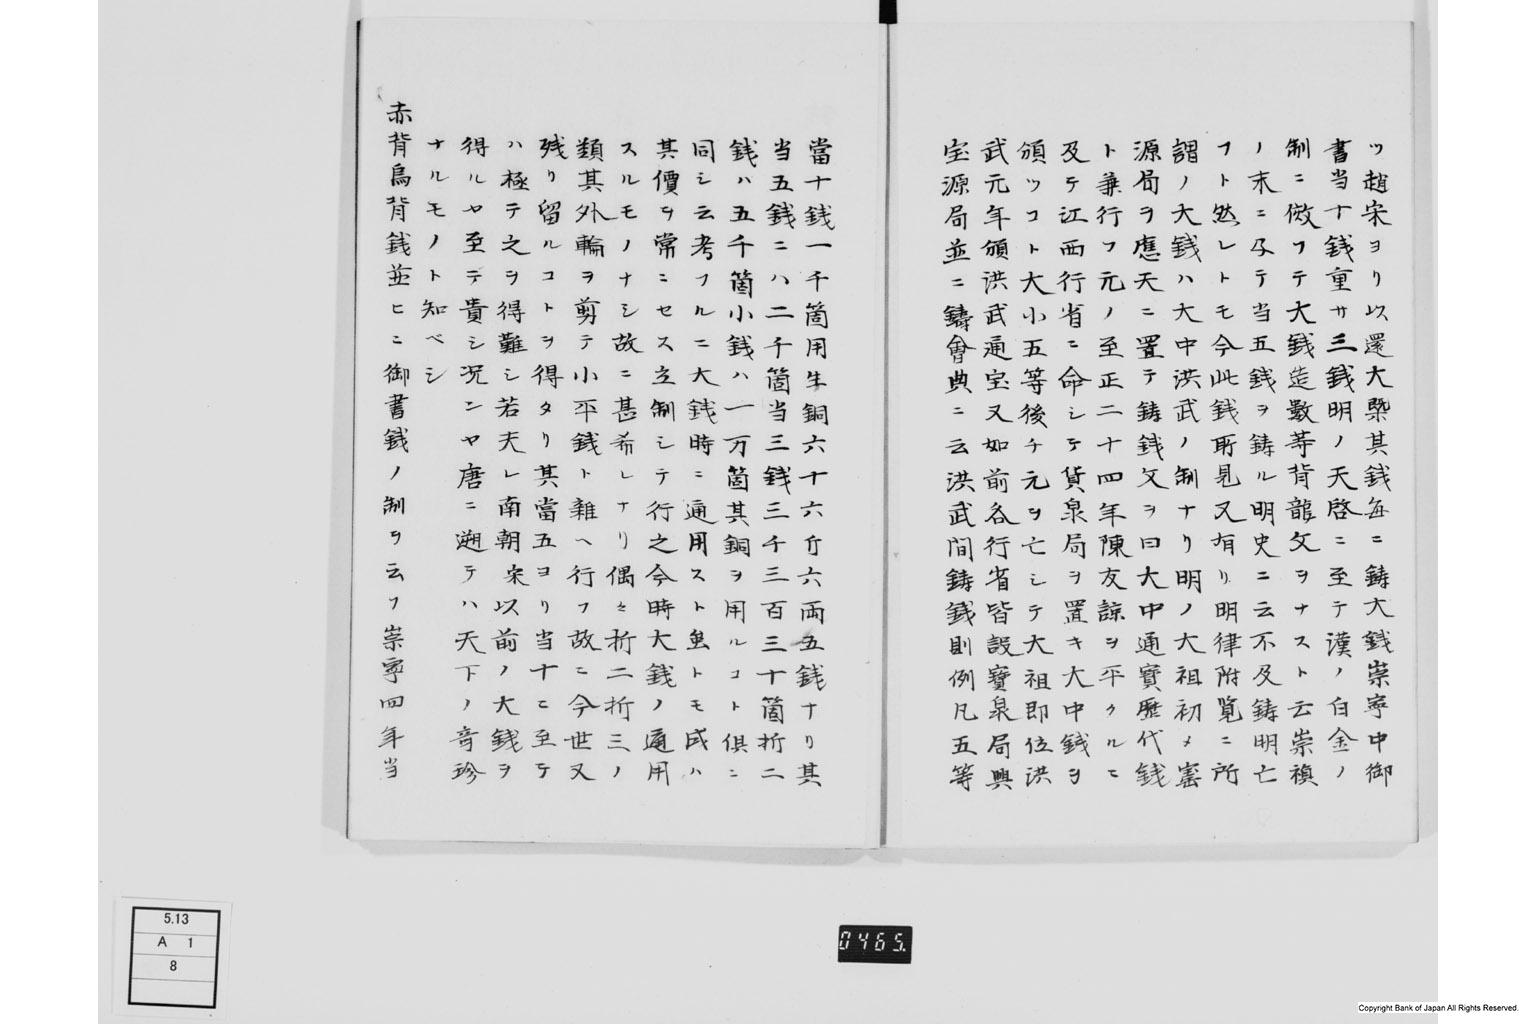 ツ趙宋ヨリ以還大槩其銭毎ニ鋳大銭崇寧中御
書当十銭重サ三銭明ノ天啓ニ至テ漢ノ白金ノ
制ニ倣フテ大銭造数等背龍文ヲナスト云崇禎
ノ末ニ及テ当五銭ヲ鋳ル明史ニ云不及鋳明亡
フト然レトモ今此銭所見又有リ明律附覧ニ所
謂ノ大銭ハ大中洪武ノ制ナリ明ノ大祖初メ宝
源局ヲ應天ニ置テ鋳銭文ヲ曰大中通寳歴代銭
ト兼行フ元ノ至正二十四年陳友諒ヲ平クルニ
及テ江西行省ニ命シテ貨泉局ヲ置キ大中銭ヲ
頒ツコト大小五等後チ元ヲ亡シテ大祖即位洪
武元年頒洪武通宝又如前各行省皆設寶泉局與
宝源局並ニ鑄會典ニ云洪武間鋳銭則例凡五等
當十銭一千箇用生銅六十六斤六両五銭ナリ其
当五銭ニハ二千箇当三銭三千三百三十箇折二
銭ハ五千箇小銭ハ一万箇其銅ヲ用ルコト倶ニ
同シ云考フルニ大銭時ニ通用スト虽トモ民ハ
其價ヲ常ニセス立制シテ行之今時大銭ノ通用
スルモノナシ故ニ甚希レナリ偶々折二折三ノ
類其外輪ヲ剪テ小平銭ト雜ヘ行フ故ニ今世又
残リ留ルコトヲ得タリ其當五ヨリ当十ニ至テ
ハ極テ之ヲ得難シ若夫レ南朝宋以前ノ大銭ヲ
得ルヤ至テ貴シ況ンヤ唐ニ遡テハ天下ノ奇珍
ナルモノト知ベシ
赤背烏背銭並ヒニ御書銭ノ制ヲ云フ崇寧四年当
5.13
A 1
8
0465.
Copyright Bank of Japan All Rights Reserved.